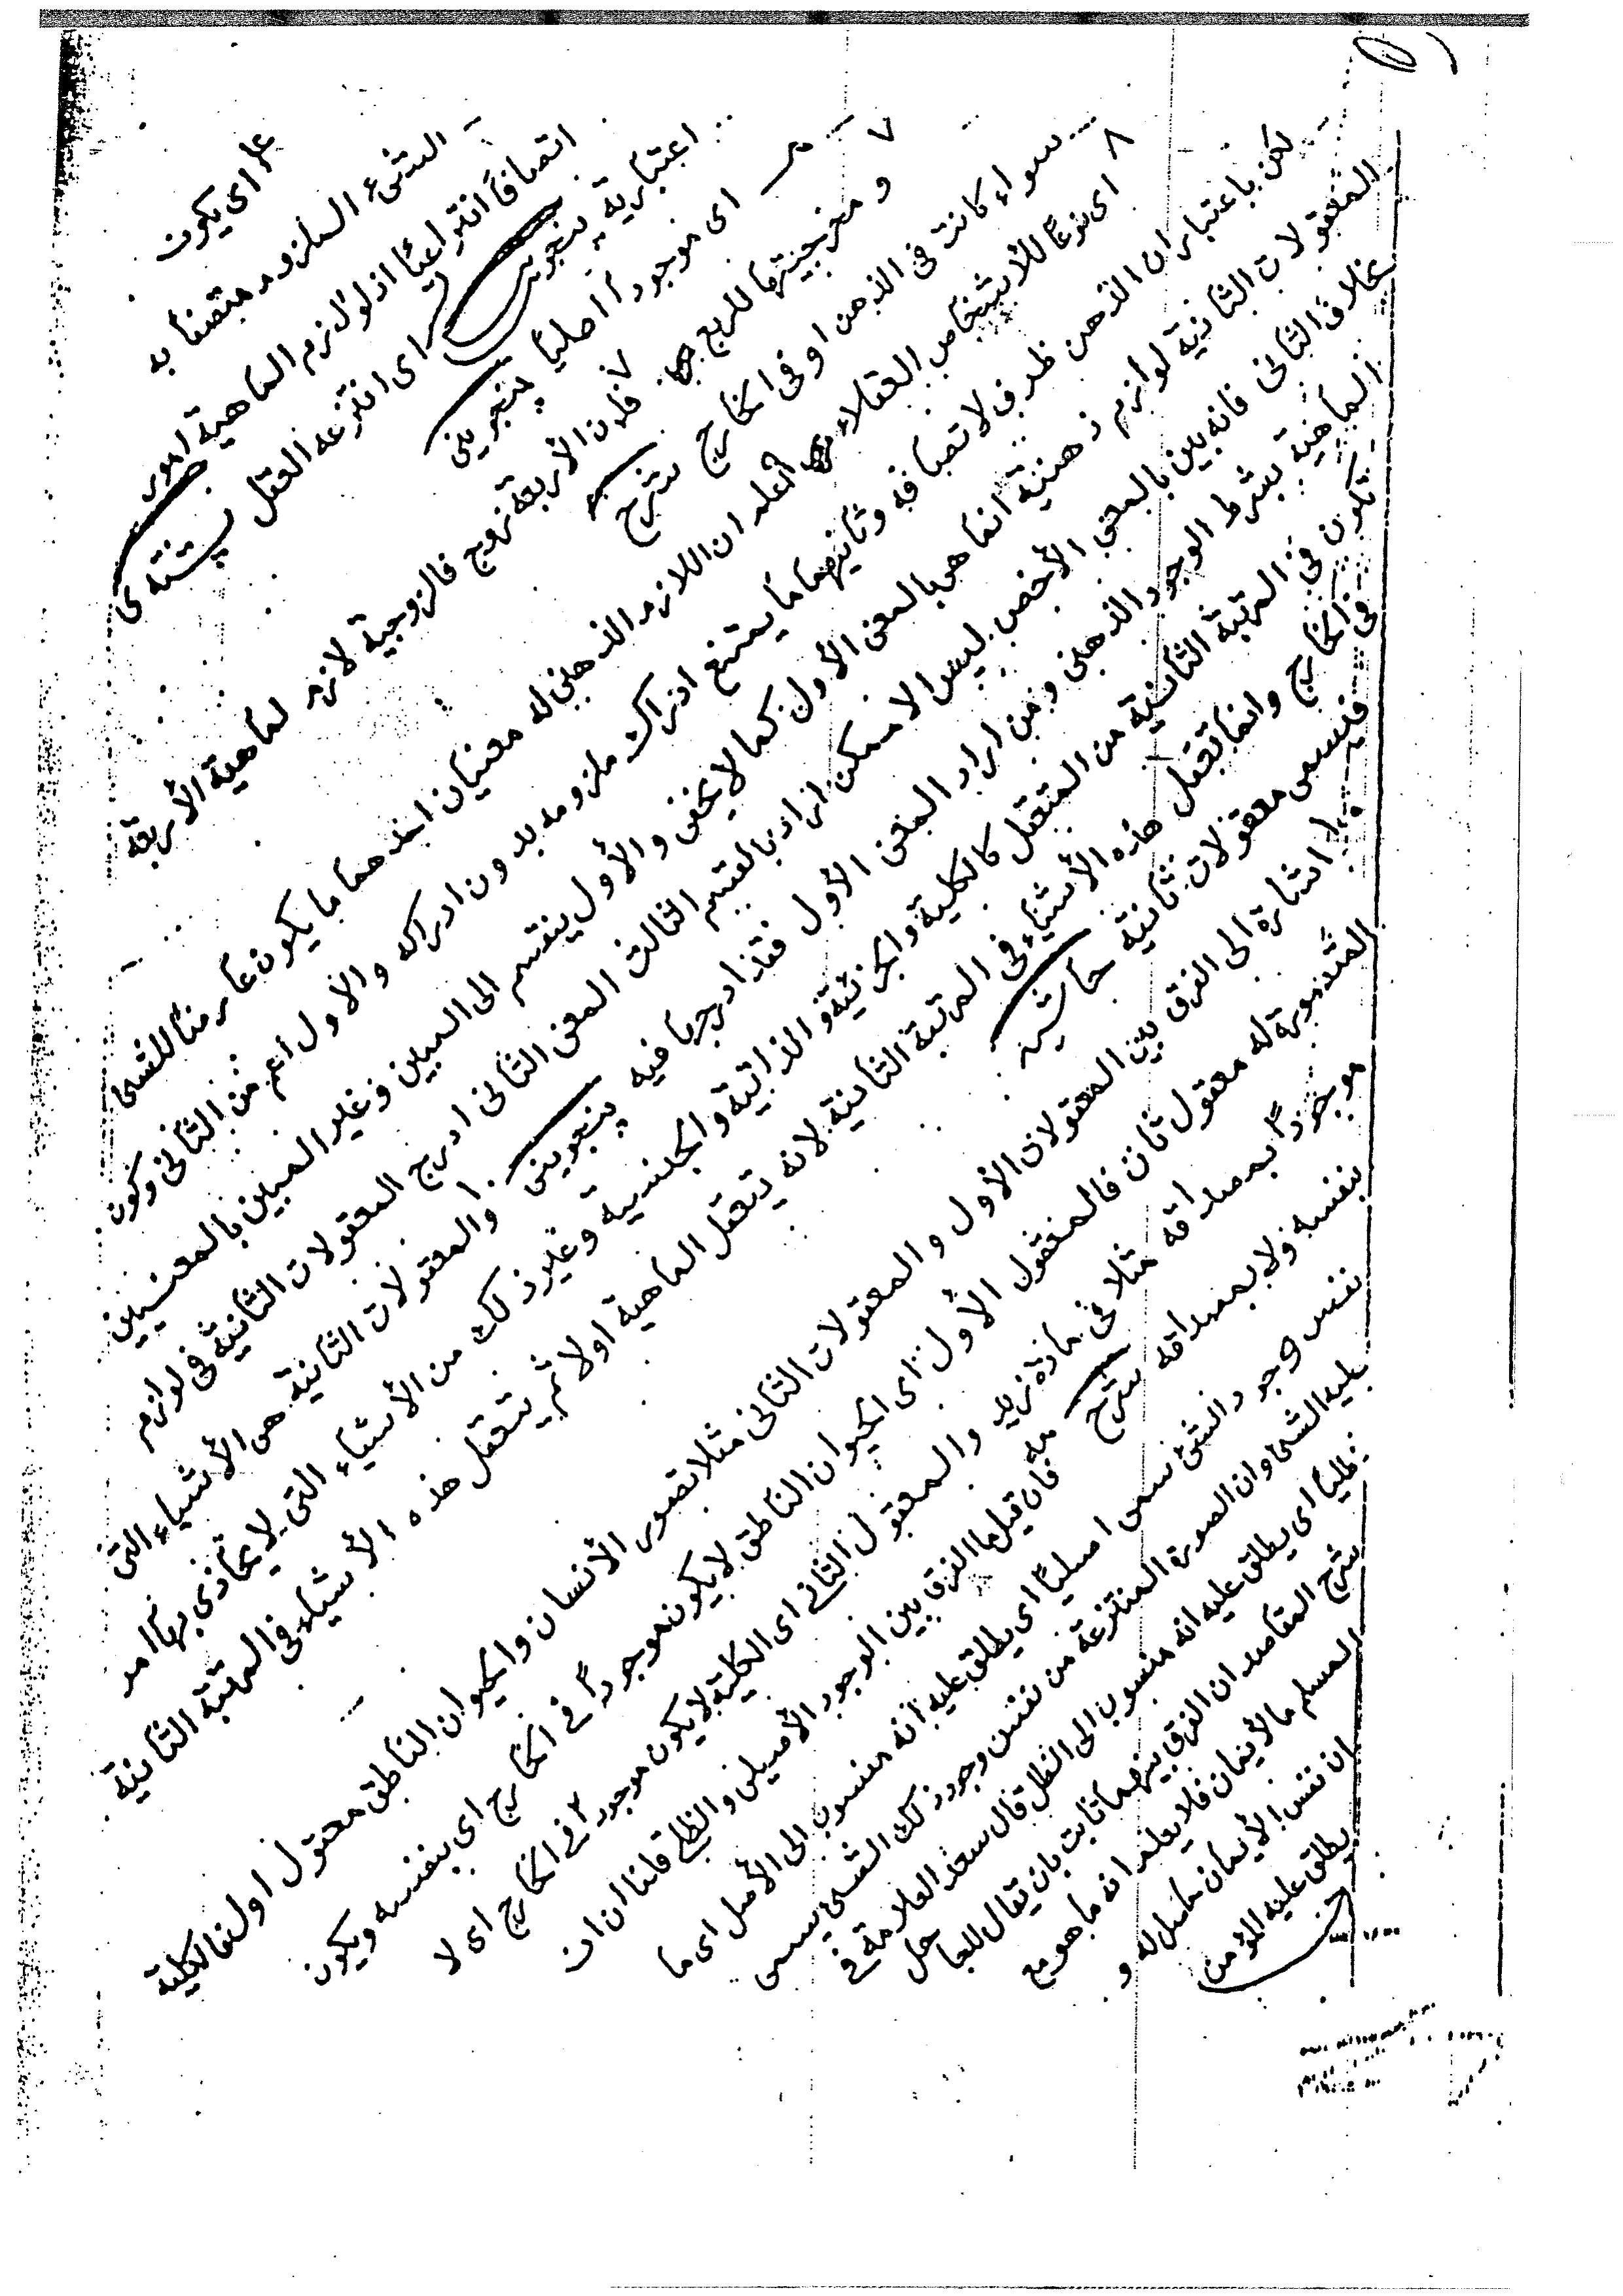 اى يكون
الشئ الملزوم متصفا به
اتصافًا انتزاعيًا اذ لوازم الماهية امور
اعتبارية پنجوينى اى انتزعه العقل
اى موجودا اصليًا پنجوينى
٧ ومخرجيتها للربع فان الأربعة زوج فالزوجية لازم لماهية الأربعة
سواء كانت فى الذهن او فى الخارج شرح
٨ اى نوعًا للأشخاص العقلاء اعلم ان اللازم الذهنى له معنيان احدهما ما يكون عارضًا للشئ
لكن باعتبار ان الذهن ظرف لاتصافه وثانيهما ما يمتنع ادراك ملزومه بدون ادراكه والأول اعم من الثانى وكون
المعقولات الثانية لوازم ذهنية انما هى بالمعنى الأول كما لا يخفى والأول ينقسم الى البين وغير البين بالمعنيين
بخلاف الثانى فانه بين بالمعنى الأخص ليس الا فمن اراد بالقسم الثالث المعنى الثانى ادرج المعقولات الثانية فى لوازم
الماهية بشرط الوجود الذهنى ومن اراد المعنى الأول فقد ادرجها فيه پنجوينى والمعقولات الثانية هى الأشياء التى
تكون فى المرتبة الثانية من التعقل كالكلية والجزئية والذاتية والجنسية وغير ذلك من الأشياء التى لا يحاذى بها امر
فى الخارج وانما تعقل هذه الأشياء فى المرتبة الثانية لانه يتعقل الماهية اولا ثم يتعقل هذه الأشياء فى المرتبة الثانية
فيسمى معقولات ثانية حاشيه
اشارة الى الفرق بين المعقولات الأول و المعقولات الثانى مثلا تصور الأنسان والحيوان الناطق معقول اول فالكلية
المتصورة له معقول ثان فالمعقول الأول اى الحيوان الناطق لا يكون موجودًا فى الخارج اى بنفسه ويكون
موجودًا بمصداقه مثلا فى مادة زيد والمعقول الثانى اى الكلية لا يكون موجودا فى الخارج اى لا
بنفسه ولا بمصداقه شرح فان قيل ما الفرق بين الوجود الأصيلى والظلى قلنا ان ان
نفس وجود الشئ سمى اصليًا اى يطلق عليه انه منسوب الى الأصل اى ما
عليه الشئ وان الصورة المنتزعة من نفس وجود ذلك الشئ يسمى
ظليًا اى يطلق عليه انه منسوب الى الظل قال سعد العلامة فى
شرح المقاصد ان الفرق بينهما ثابت بان يقال للجاهل
المسلم ما الأيمان فلا يعلم انه ما هو مع
ان نفس الأيمان حاصل له و
يطلق عليه المؤمن